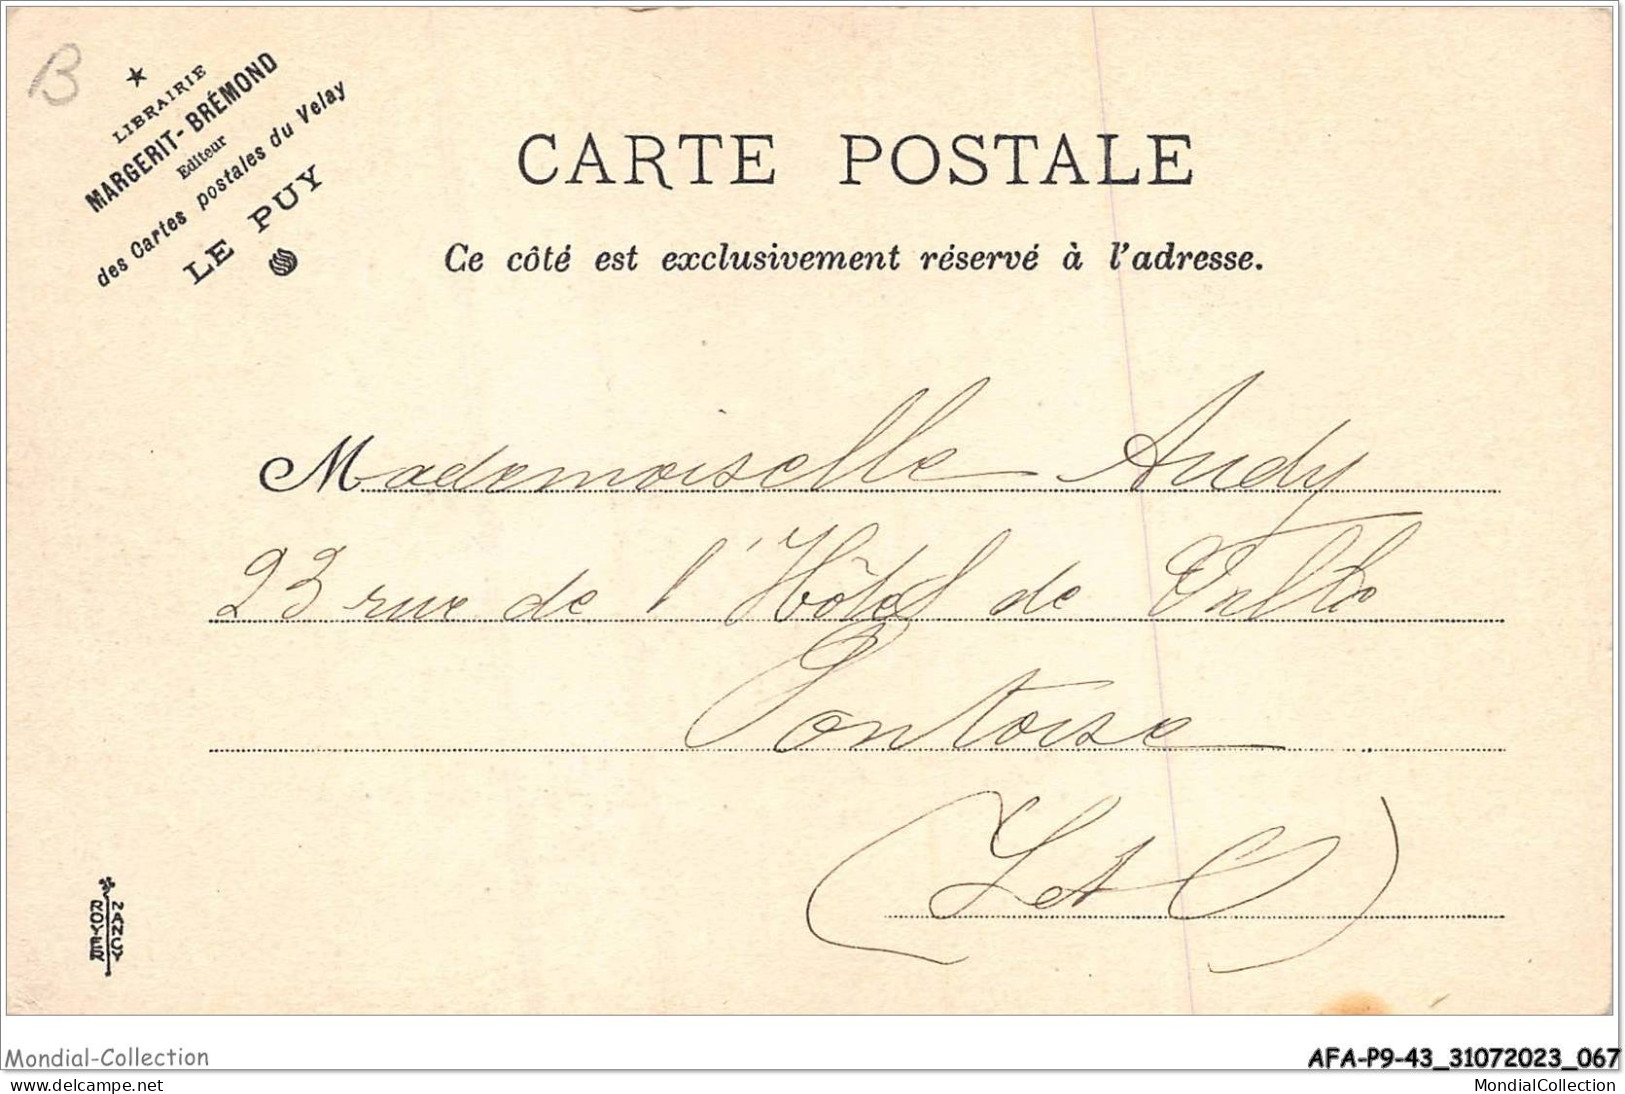 B
LIBRAIRIE
MARGERIT-BRÉMOND
Editeur
des Cartes postales du Velay
LE PUY
CARTE POSTALE
Ce côté est exclusivement réservé à l'adresse.
Mademoiselle Audy
23 rue de l'Hôtel de Ville
Pontoise
(S et O)
NANCY
ROYER
Mondial-Collection
delcampe.net
AFA-P9-43_31072023_067
MondialCollection